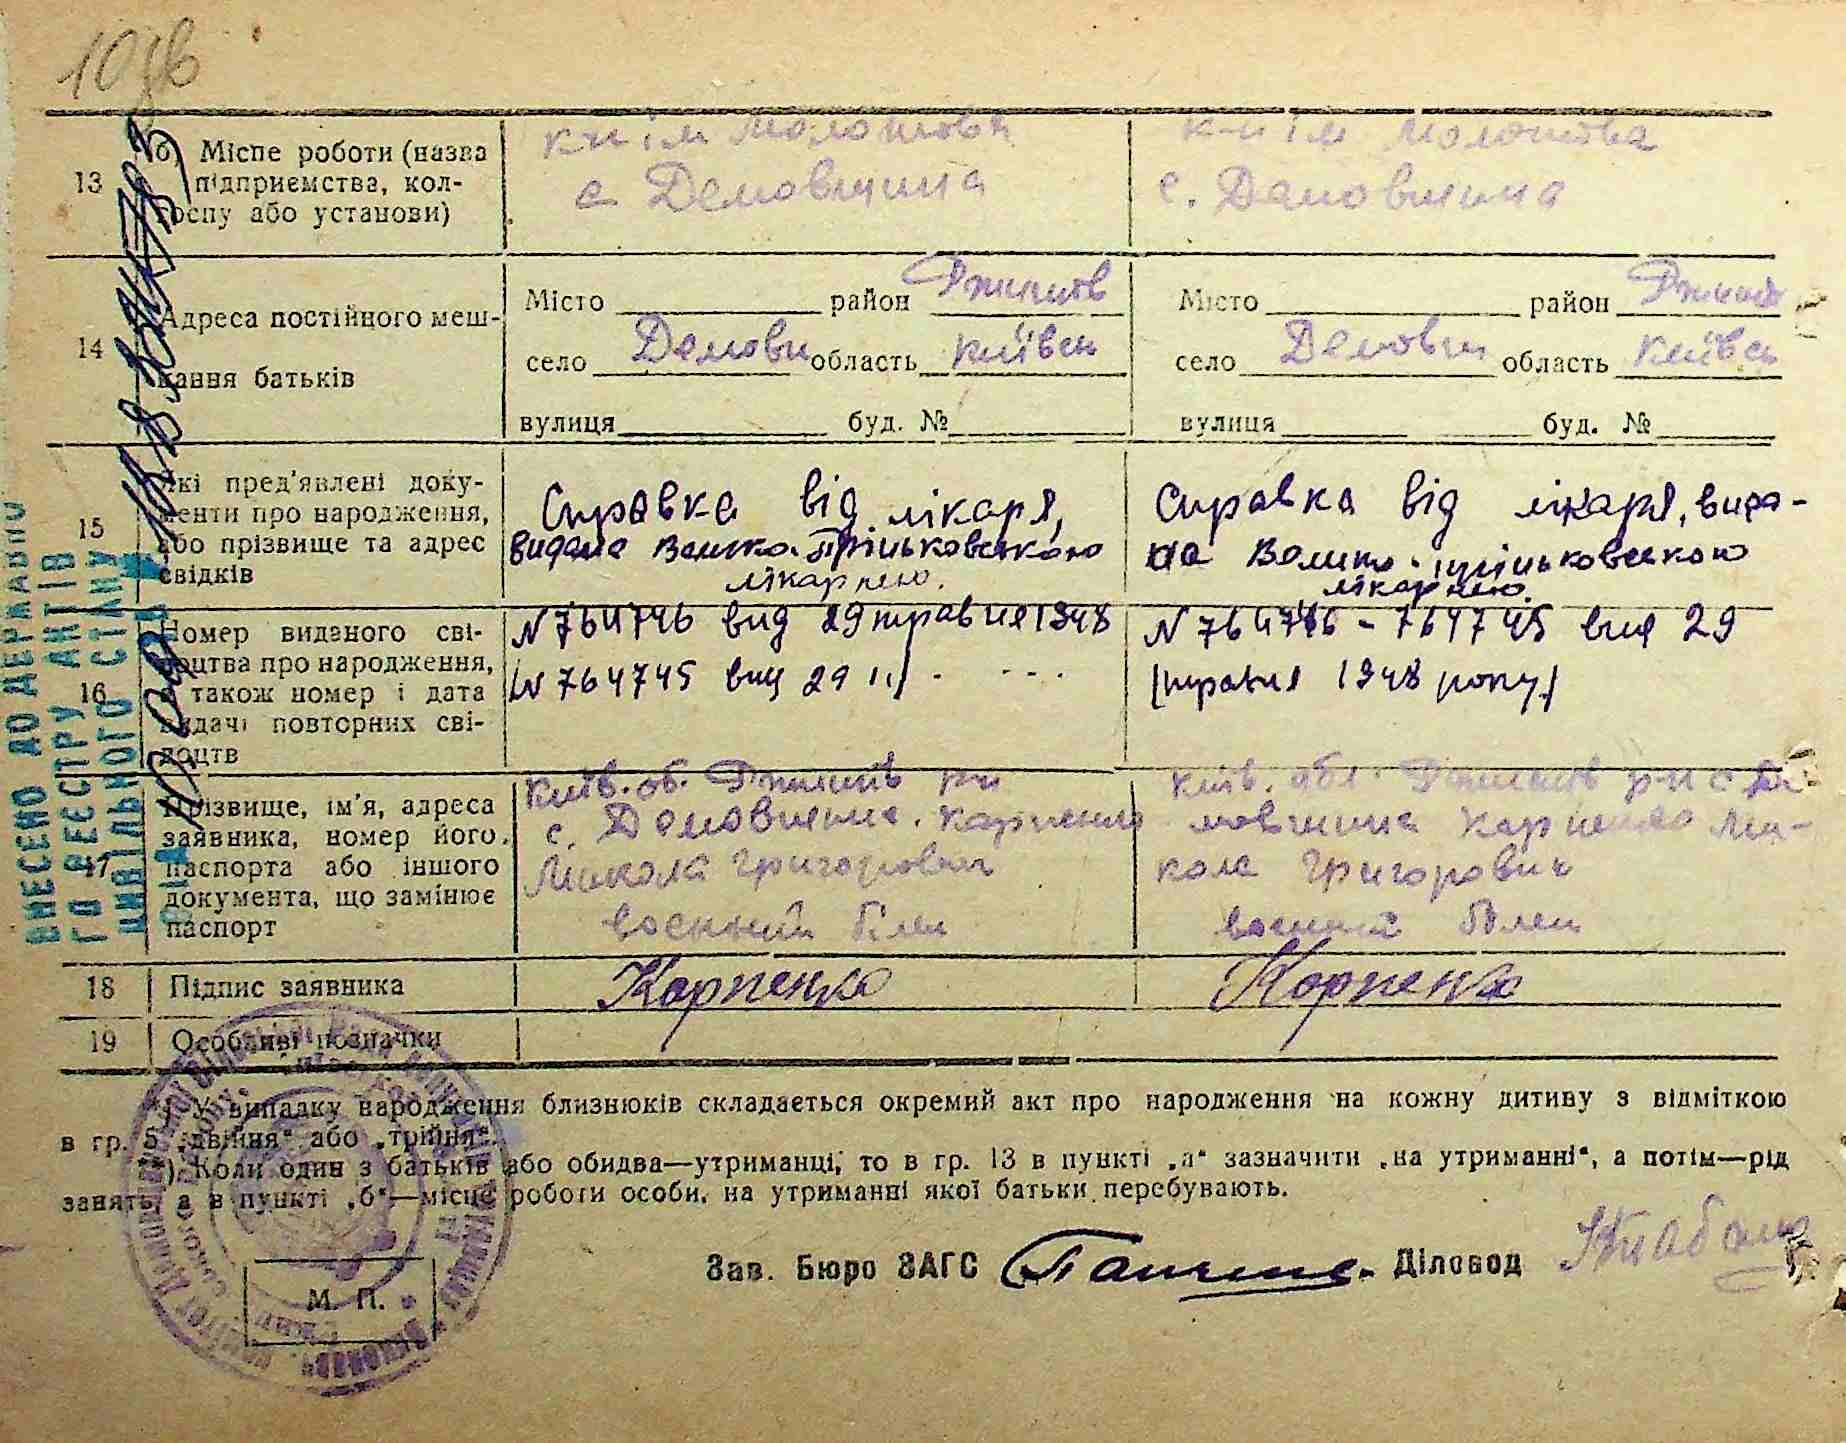 13
б) Місце роботи (назва
підприємства, кол-
госпу або установи)
к-п ім Молотова
с Демовщина
к-п ім Молотова
с. Демовщина
14
Адреса постійного меш-
кання батьків
Місто район
село Демовщи область Київсь
вулиця буд. №
Місто район
село Демовщи область Київсь
вулиця буд. №
15
Які пред'явлені доку-
менти про народження,
або прізвище та адрес
свідків
Справка від лікаря,
видана Велико-Прицьковською
лікарнею.
Справка від лікаря, вида-
на Велико-Прицьковською
лікарнею.
16
Номер виданого сві-
доцтва про народження,
а також номер і дата
видачі повторних сві-
доцтв
N 764746 вид 29 травня 1948
N 764745 вид 29
N 764746 - 764745 вид 29
травня 1948 року
17
Прізвище, ім'я, адреса
заявника, номер його
паспорта або іншого
документа, що замінює
паспорт
Київ. об. р-н
с. Демовщина. Карпенко
Микола Григорович
воєнний білет
Київ. обл. р-н с Де-
мовщина Карпенко Ми-
кола Григорович
воєнний білет
18 Підпис заявника Карпенко Карпенко
19 Особливі позначки
*) У випадку народження близнюків складається окремий акт про народження на кожну дитину з відміткою
в гр. 5 „двійня“ або „трійня“.
**) Коли один з батьків або обидва—утриманці, то в гр. 13 в пункті „а“ зазначити „на утриманні“, а потім—рід
занять, а в пункті „б“—місце роботи особи, на утриманні якої батьки перебувають.
Зав. Бюро ЗАГС Діловод
М. П.
ВНЕСЕНО ДО ДЕРЖАВНО
ГО РЕЄСТРУ АКТІВ
ЦИВІЛЬНОГО СТАНУ